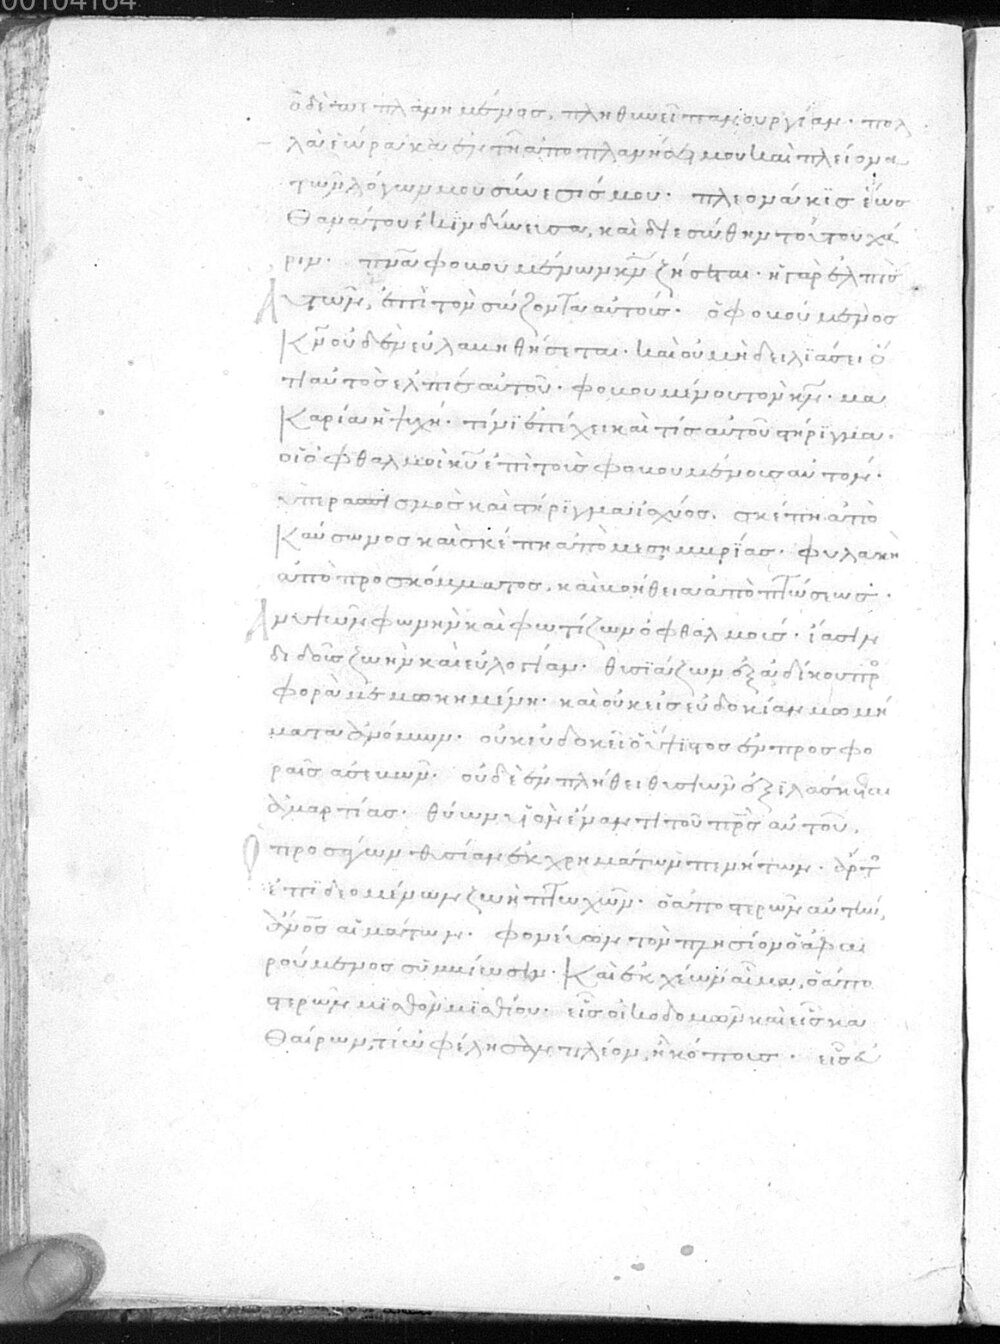 00104164
ὁ δὲ πεπλανημένος, πληθυνεῖ πανουργίαν· πολ
λὰ ἑώρακα ἐν τῆ ἀποπλανήσει μου καὶ πλείονα
τῶν λόγων μου σύνεσίς μου· πλεονάκις ἕως
θανάτου ἐκινδύνευσα, καὶ διεσώθην τούτου χά
ριν· πνα φοβουμένων κν ζήσεται· ἡ γὰρ ἐλπὶς
αὐτῶν, ἐπὶ τὸν σώζοντα αὐτούς· ὁ φοβούμενος
κν οὐδὲν εὐλαβηθήσεται· καὶ οὐ μὴ δειλιάσει ὅ
τι αὐτὸς ἐλπὶς αὐτοῦ· φοβουμένου τὸν κν· μα
καρία ἡ ψυχή· τίνι ἐπέχει καὶ τίς αὐτοῦ στήριγμα·
οἱ ὀφθαλμοὶ κυ ἐπὶ τοὺς φοβουμένους αὐτόν·
ὑπερασπισμὸς καὶ στήριγμα ἰσχύος, σκέπη ἀπὸ
καύσωνος καὶ σκέπη ἀπὸ μεσημβρίας· φυλακὴ
ἀπὸ προσκόμματος, καὶ βοήθεια ἀπὸ πτώσεως·
ἀνυψῶν ψυχὴν καὶ φωτίζων ὀφθαλμούς· ἴασιν
διδοὺς ζωὴν καὶ εὐλογίαν· θυσιάζων ἐξ ἀδίκου προσ
φορὰ μεμωκημένη· καὶ οὐκ εἰς εὐδοκίαν μωκή
ματα ἀνόμων· οὐκ εὐδοκεῖ ὁ ὕψιστος ἐν προσφο
ραῖς ἀσεβῶν· οὐδὲ ἐν πλήθει θυσιῶν ἐξιλάσκεται
ἁμαρτίας· θύων υἱὸν ἔναντι τοῦ πρς αὐτοῦ,
ὁ προσάγων θυσίαν ἐκ χρημάτων πενήτων· ἄρτος
ἐπιδεομένων ζωὴ πτωχῶν· ὁ ἀποστερῶν αὐτὴν,
ἄνος αἱμάτων· φονεύων τὸν πλησίον ὁ ἀφαι
ρούμενος συμβίωσιν· καὶ ἐκχέων αἷμα, ὁ ἀπο
στερῶν μισθὸν μισθίου· εἷς οἰκοδομῶν καὶ εἷς κα
θαίρων, τί ὠφέλησαν πλέον, ἢ κόπους· εἷς ἐ